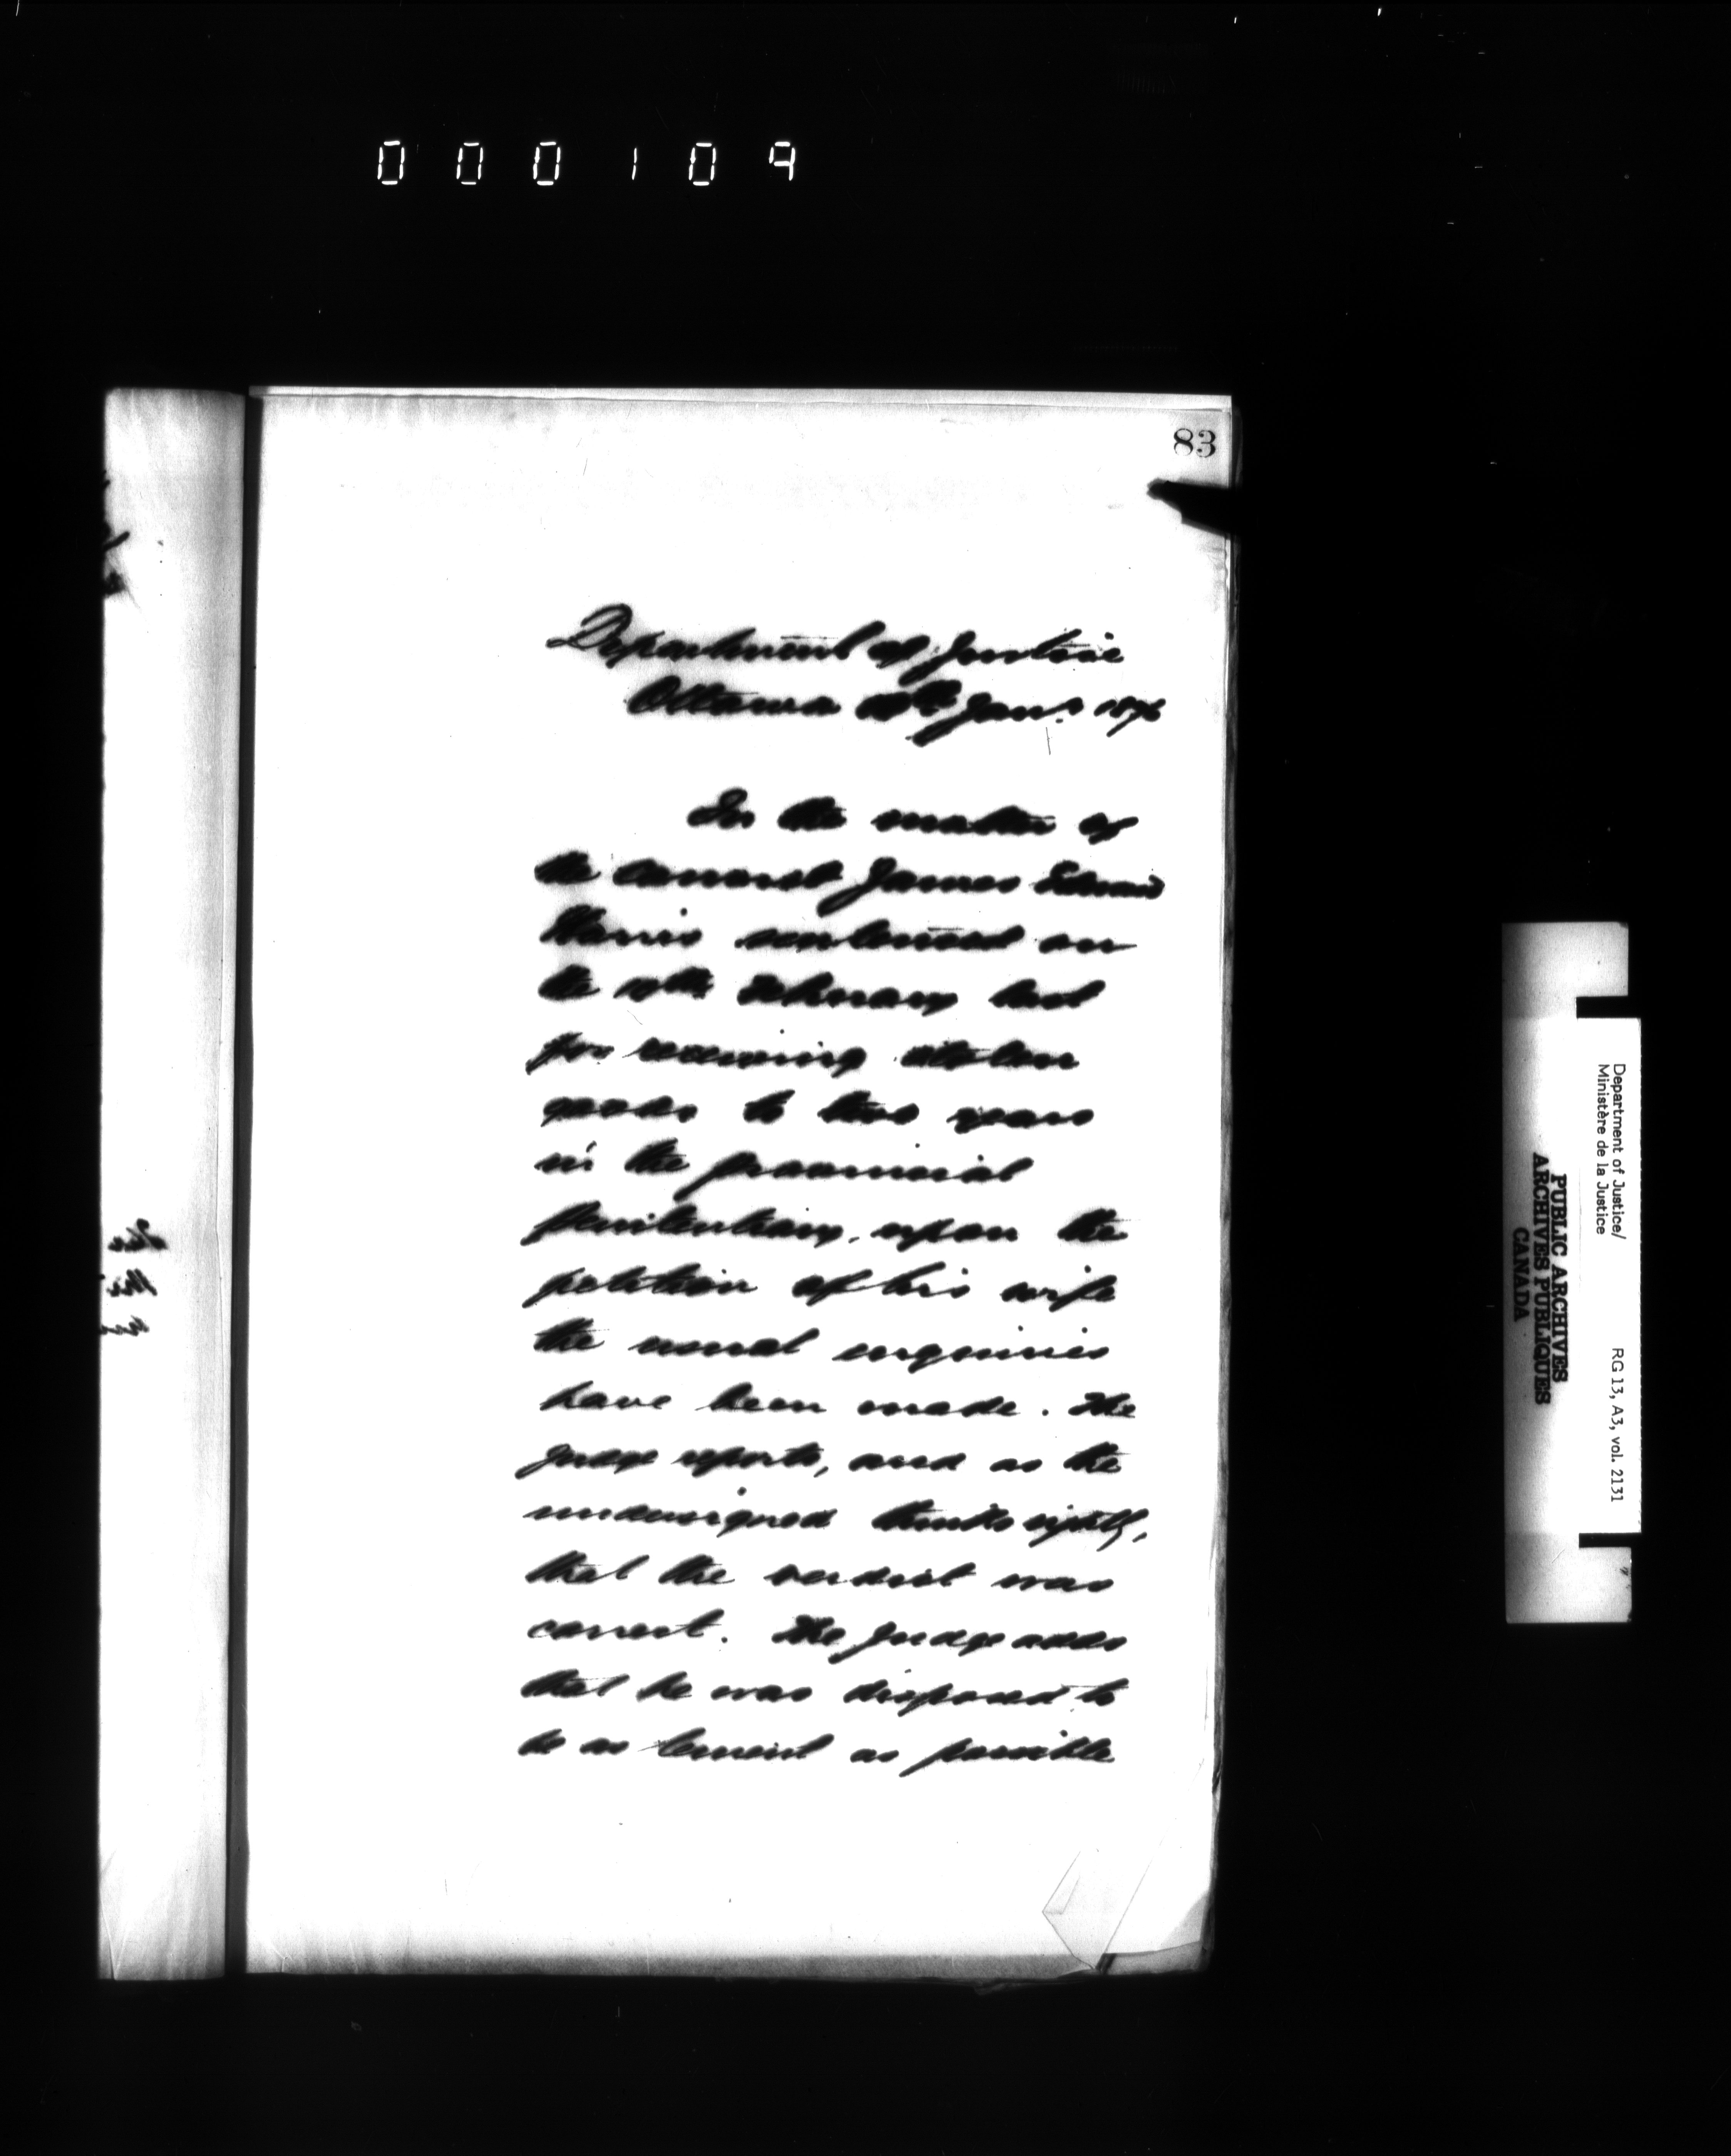 000109
83
Department of Justice
Ottawa Jany. 1876
In the matter of
the convict James Edward
Harris sentenced on
the February last
for receiving stolen
goods to two years
in the provincial
penitentiary, upon the
petition of his wife
the usual enquiries
have been made. The
Judge reports, and as the
undersigned thinks rightly,
that the verdict was
correct. The Judge adds
that he was disposed to
be as lenient as possible
Department of Justice/
Ministère de la Justice
RG 13, A3, vol. 2131
PUBLIC ARCHIVES
ARCHIVES PUBLIQUES
CANADA